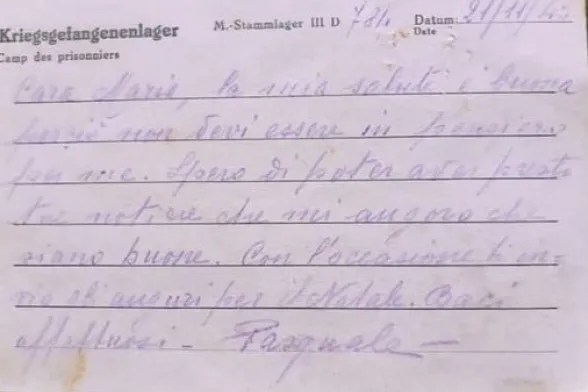 Kriegsgefangenenlager M.-Stammlager III D 784 Datum: 21/11/43
Camp des prisonniers Date
Cara Maria, la mia salute è buona
perciò non devi essere in pensiero
per me. Spero di poter aver presto
tue notizie che mi auguro che
siano buone. Con l'occasione ti in=
vio gli auguri per il Natale. Baci
affettuosi - Pasquale -